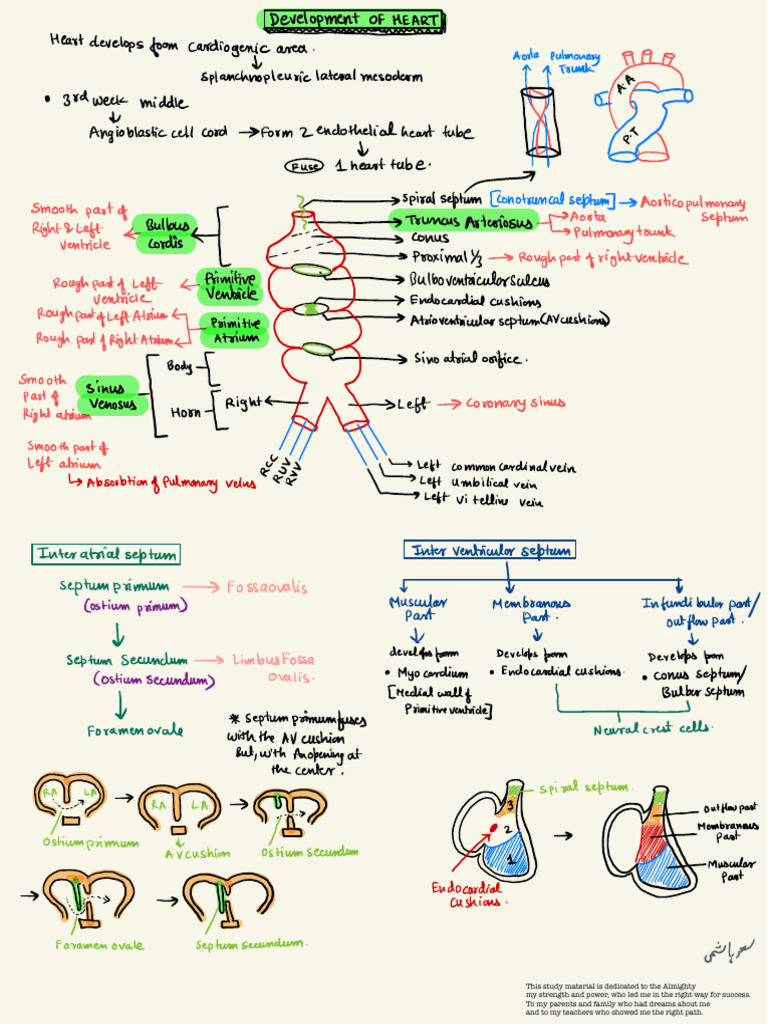 Development OF HEART
Heart develops from cardiogenic area.
Splanchnopleuric lateral mesoderm
• 3rd week middle
Angioblastic cell cord → Form 2 endothelial heart tube
Fuse 1 heart tube.
Aorta Pulmonary
Trunk
A.A
P.T
Spiral septum [conotruncal septum] → Aorticopulmonary
Septum
Truncus Arteriosus
Aorta
Pulmonary trunk
Conus
Proximal 1/3 → Rough part of right ventricle
Bulboventricular sulcus
Endocardial cushions
Atrioventricular septum (AV cushions)
Sino atrial orifice.
Smooth part of
Right & Left
ventricle
Bulbus
Cordis
Rough part of Left
ventricle
Primitive
Ventricle
Rough part of Left Atrium
Rough part of Right Atrium
Primitive
Atrium
Smooth
part of
Right atrium
Sinus
Venosus
Body
Horn
Right
Left → Coronary sinus
Smooth part of
Left atrium
↳ Absorbtion of Pulmonary veins
RCC
RUV
RVV
Left common cardinal vein
Left umbilical vein
Left vitelline vein
Inter atrial septum
Septum primum → Fossa ovalis
(ostium primum)
Septum Secundum → Limbus Fossa
ovalis.
(ostium secundum)
Foramen ovale
* Septum primum fuses
with the AV cushion
But, with An opening at
the center.
RA LA
Ostium primum
RA LA
AV cushion
Ostium secundum
Foramen ovale
Septum secundum.
Inter ventricular septum
Muscular
Part
Membranous
Part.
Infundibular part/
outflow part.
develops from
• Myocardium
[Medial wall of
Primitive ventricle]
Develops from
• Endocardial cushions.
Develops from
• conus septum/
Bulber septum
Neural crest cells.
Spiral septum.
3
2
1
Endocardial
Cushions.
Outflow part
Membranous
Part
Muscular
Part
This study material is dedicated to the Almighty
my strength and power, who led me in the right way for success.
To my parents and family who had dreams about me
and to my teachers who showed me the right path.